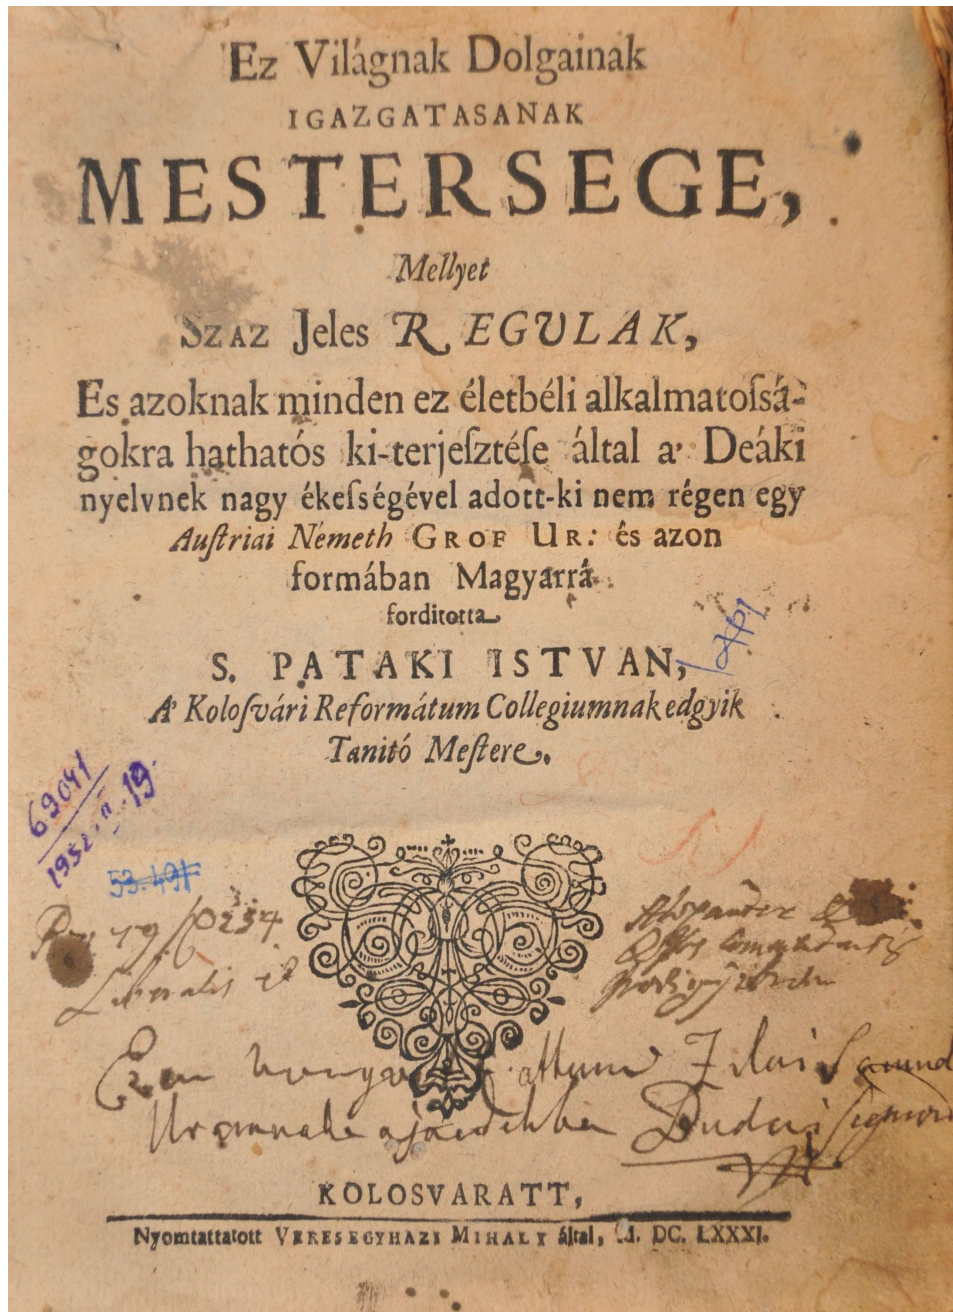 Ez Világnak Dolgainak
IGAZGATASANAK
MESTERSEGE,
Mellyet
SZAZ Jeles REGULAK,
Es azoknak minden ez életbéli alkalmatoſsá-
gokra hathatós ki-terjeſztéſe által a' Deáki
nyelvnek nagy ékeſségével adott-ki nem régen egy
Auſtriai Nemeth GROF UR: és azon
formában Magyarrá
forditotta
S. PATAKI ISTVAN,
A' Koloſvári Reformátum Collegiumnak edgyik
Tanitó Meſtere.
69041
1952. II. 19.
53.491
Liberalis
Ezen attam Samuel
Uramnak ajandekba
KOLOSVARATT,
Nyomtattatott VERESEGYHAZI MIHALY által, M. DC. LXXXI.